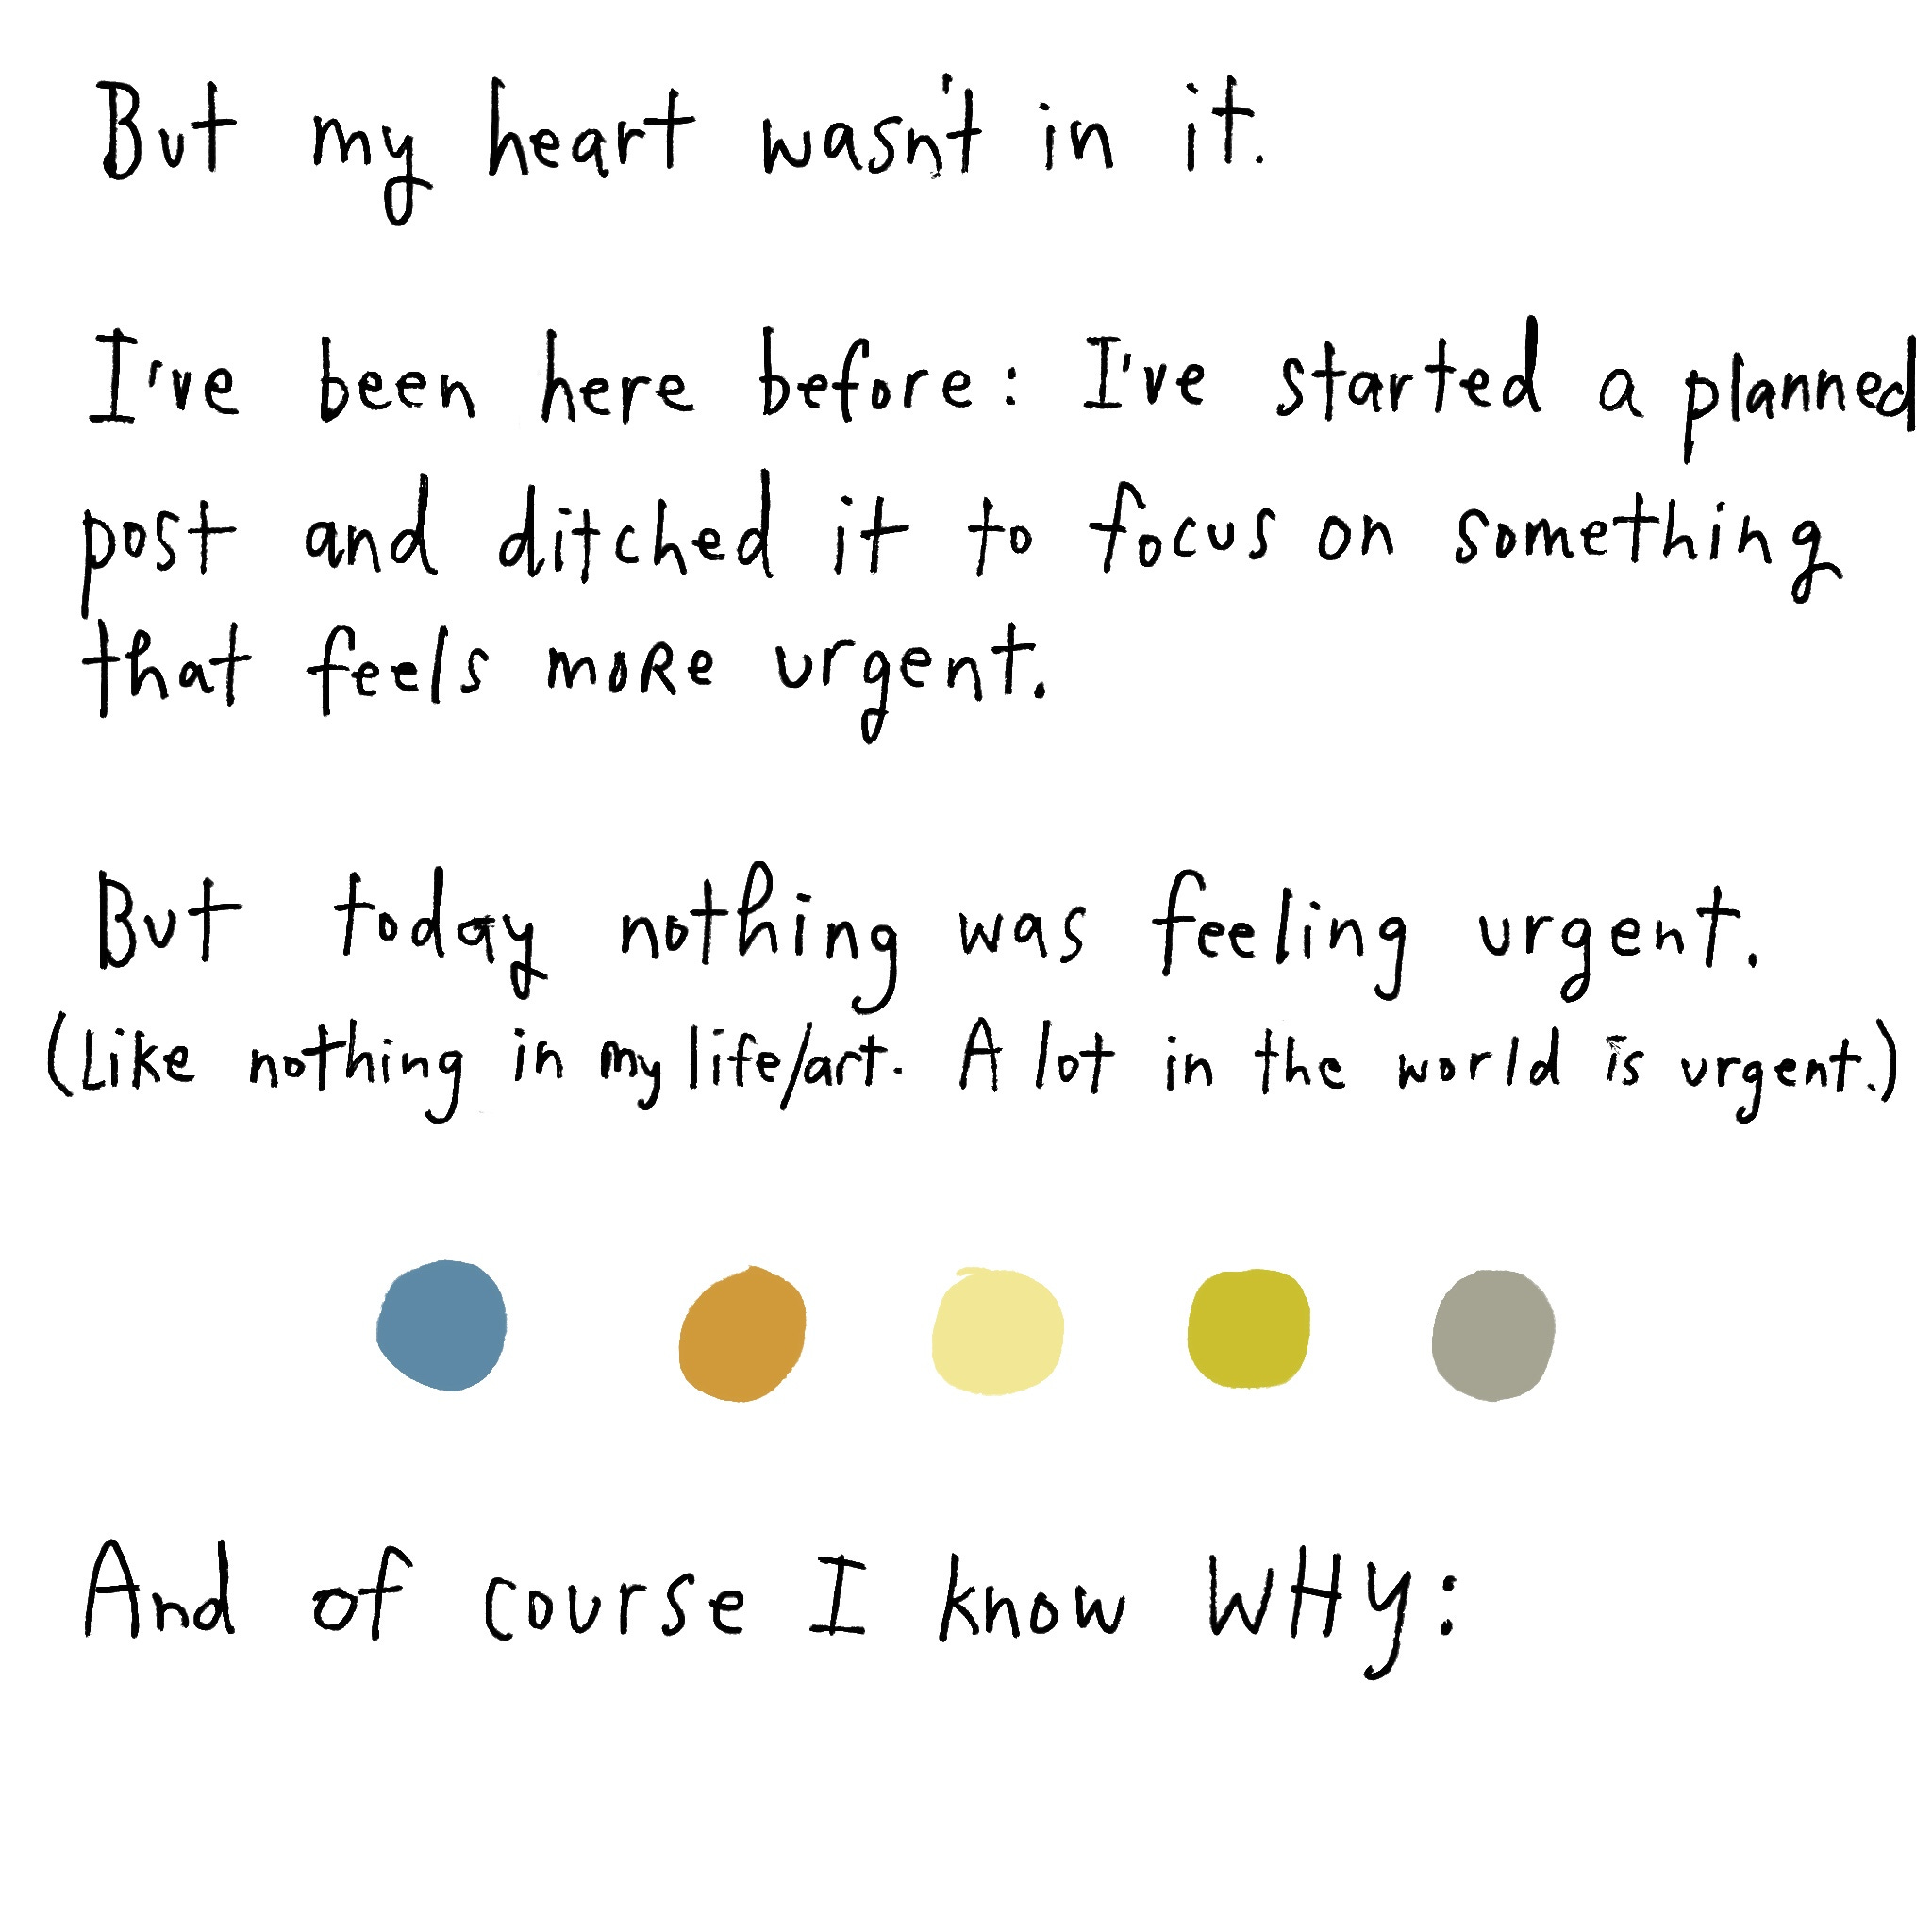 But my heart wasn't in it.
I've been here before: I've started a planned
post and ditched it to focus on something
that feels more urgent.
But today nothing was feeling urgent.
(Like nothing in my life/art. A lot in the world is urgent.)
And of course I know WHY: